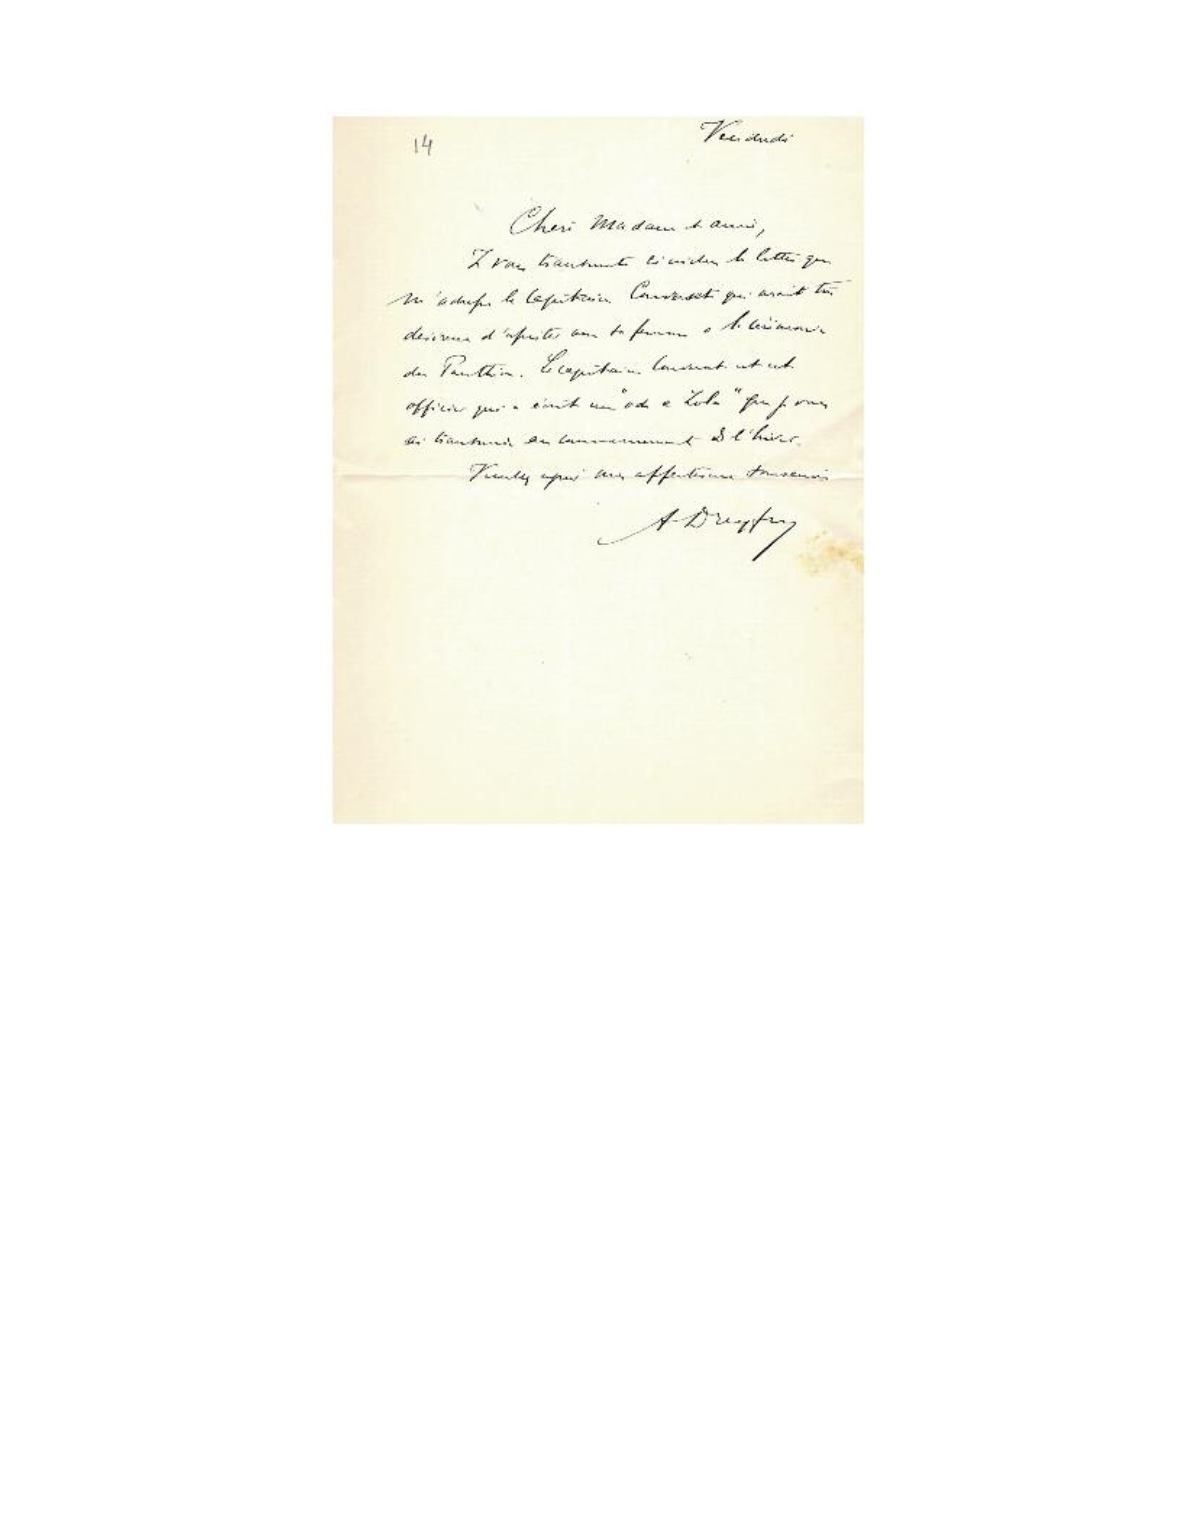 14
Vendredi
Chère Madame et amie,
Je vous transmets ci-inclus la lettre que
m'adresse le Capitaine qui serait très
désireux d'assister avec sa femme à la cérémonie
du Panthéon. Le capitaine est cet
officier qui a écrit une "ode à Zola" que je vous
ai transmise au commencement de l'hiver.
Veuillez agréer mes affectueux souvenirs
A Dreyfus